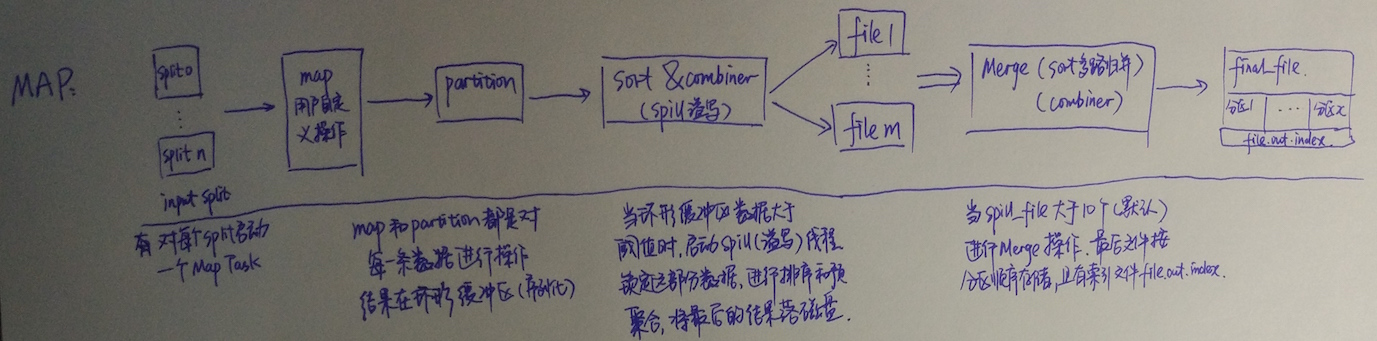 MAP:
split0
⋮
split n
input split
map
用户自定
义操作
partition
sort & combiner
(spill 溢写)
file 1
⋮
file m
Merge (sort多路归并)
(combiner)
final_file.
分区1 ... 分区x
file.out.index
对每个split启动
一个Map Task
map和partition都是对
每一条数据进行操作
结果在环形缓冲区(序列化)
当环形缓冲区数据大于
阈值时,启动spill(溢写)线程
锁定这部分数据,进行排序和预
聚合,将最后的结果落磁盘.
当spill_file大于10个(默认)
进行Merge操作.最后文件按
分区顺序存储,且有索引文件file.out.index.